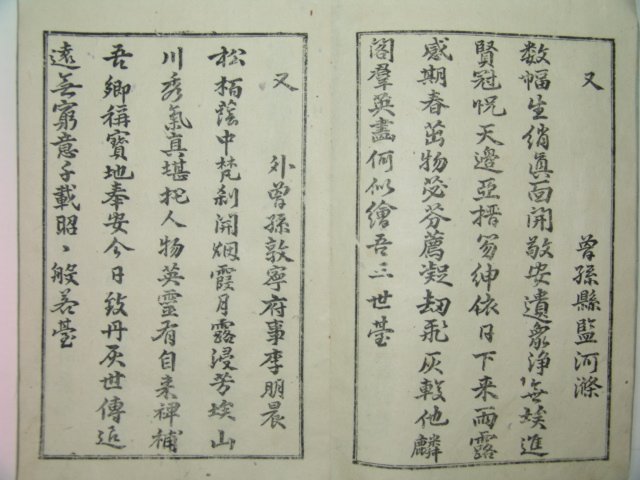 又
曾孫縣監河滌
数幅生綃眞面開敬安遺象淨無埃進
賢冠怳天邊亞搢笏紳依日下来雨露
感期春茁物苾芬薦凝劫飛灰較他麟
閣羣英畵何似繪吾三世臺
又
外曾孫敦寧府事李朋晨
松栢蔭中梵刹開烟霞月露浸芳埃山
川秀氣真堪托人物英靈有自来裨補
吾鄉稱寶地奉安今日致丹灰世傳追
遠無窮意千載昭〻般若臺